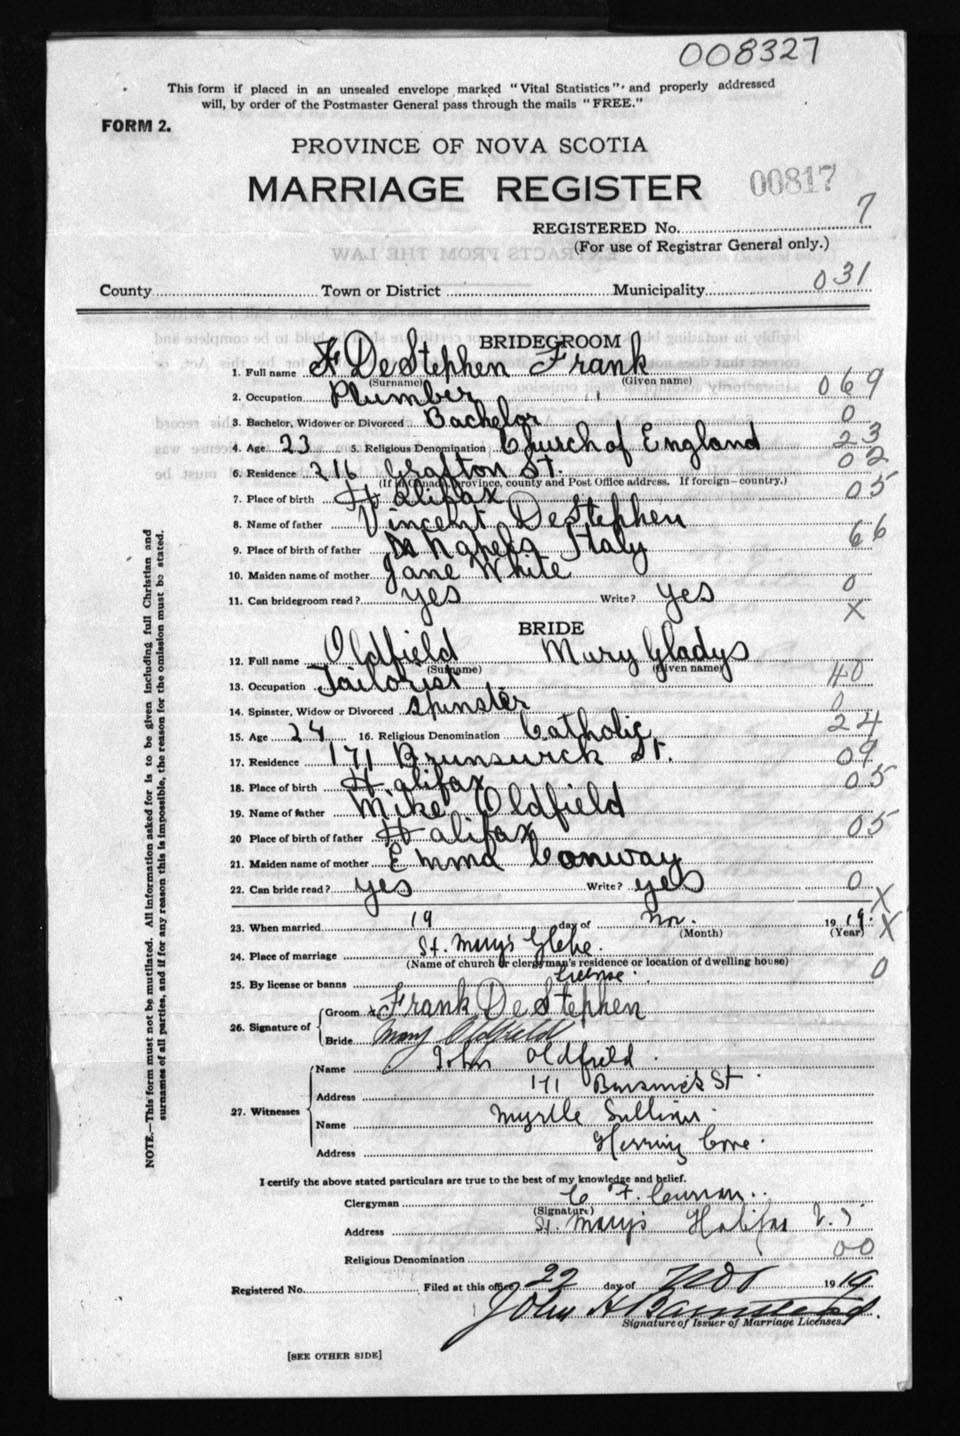 008327
This form if placed in an unsealed envelope marked "Vital Statistics" and properly addressed
will, by order of the Postmaster General pass through the mails "FREE."
FORM 2.
PROVINCE OF NOVA SCOTIA
MARRIAGE REGISTER 00817
REGISTERED No. 7
(For use of Registrar General only.)
County Town or District Municipality 031
BRIDEGROOM
1. Full name DeStephen Frank
(Surname) (Given name)
2. Occupation Plumber 069
3. Bachelor, Widower or Divorced Bachelor 0
4. Age 23 5. Religious Denomination Church of England 23
6. Residence 216 Grafton St. 02
(If in Canada, province, county and Post Office address. If foreign—country.)
7. Place of birth Halifax 05
8. Name of father Vincent DeStephen
9. Place of birth of father Naples Italy 66
10. Maiden name of mother Jane White 0
11. Can bridegroom read? yes Write? yes X
BRIDE
12. Full name Oldfield Mary Gladys
(Surname) (Given name)
13. Occupation Tailorist 40
14. Spinster, Widow or Divorced Spinster 0
15. Age 24 16. Religious Denomination Catholic 24
17. Residence 171 Brunswick St. 09
18. Place of birth Halifax 05
19. Name of father Mike Oldfield
20 Place of birth of father Halifax 05
21. Maiden name of mother Emma Conway
22. Can bride read? yes Write? yes 0 X
23. When married 19 day of Nov. 1919. X
(Month) (Year)
24. Place of marriage St. Mary's Glebe.
(Name of church or clergyman's residence or location of dwelling house) 0
25. By license or banns License.
26. Signature of Groom x Frank DeStephen
Bride Mary Oldfield
27. Witnesses Name John Oldfield
Address 171 St
Name Myrtle Sullivan
Address Herring Cove
I certify the above stated particulars are true to the best of my knowledge and belief.
Clergyman C. F. Curran
(Signature)
Address St. Mary's Halifax N.S.
Religious Denomination 00
Registered No. Filed at this office 22 day of Nov 1919
John H Barnstead
Signature of Issuer of Marriage Licenses.
[SEE OTHER SIDE]
NOTE.—This form must not be mutilated. All information asked for is to be given including full Christian and
surnames of all parties, and if for any reason this is impossible, the reason for the omission must be stated.